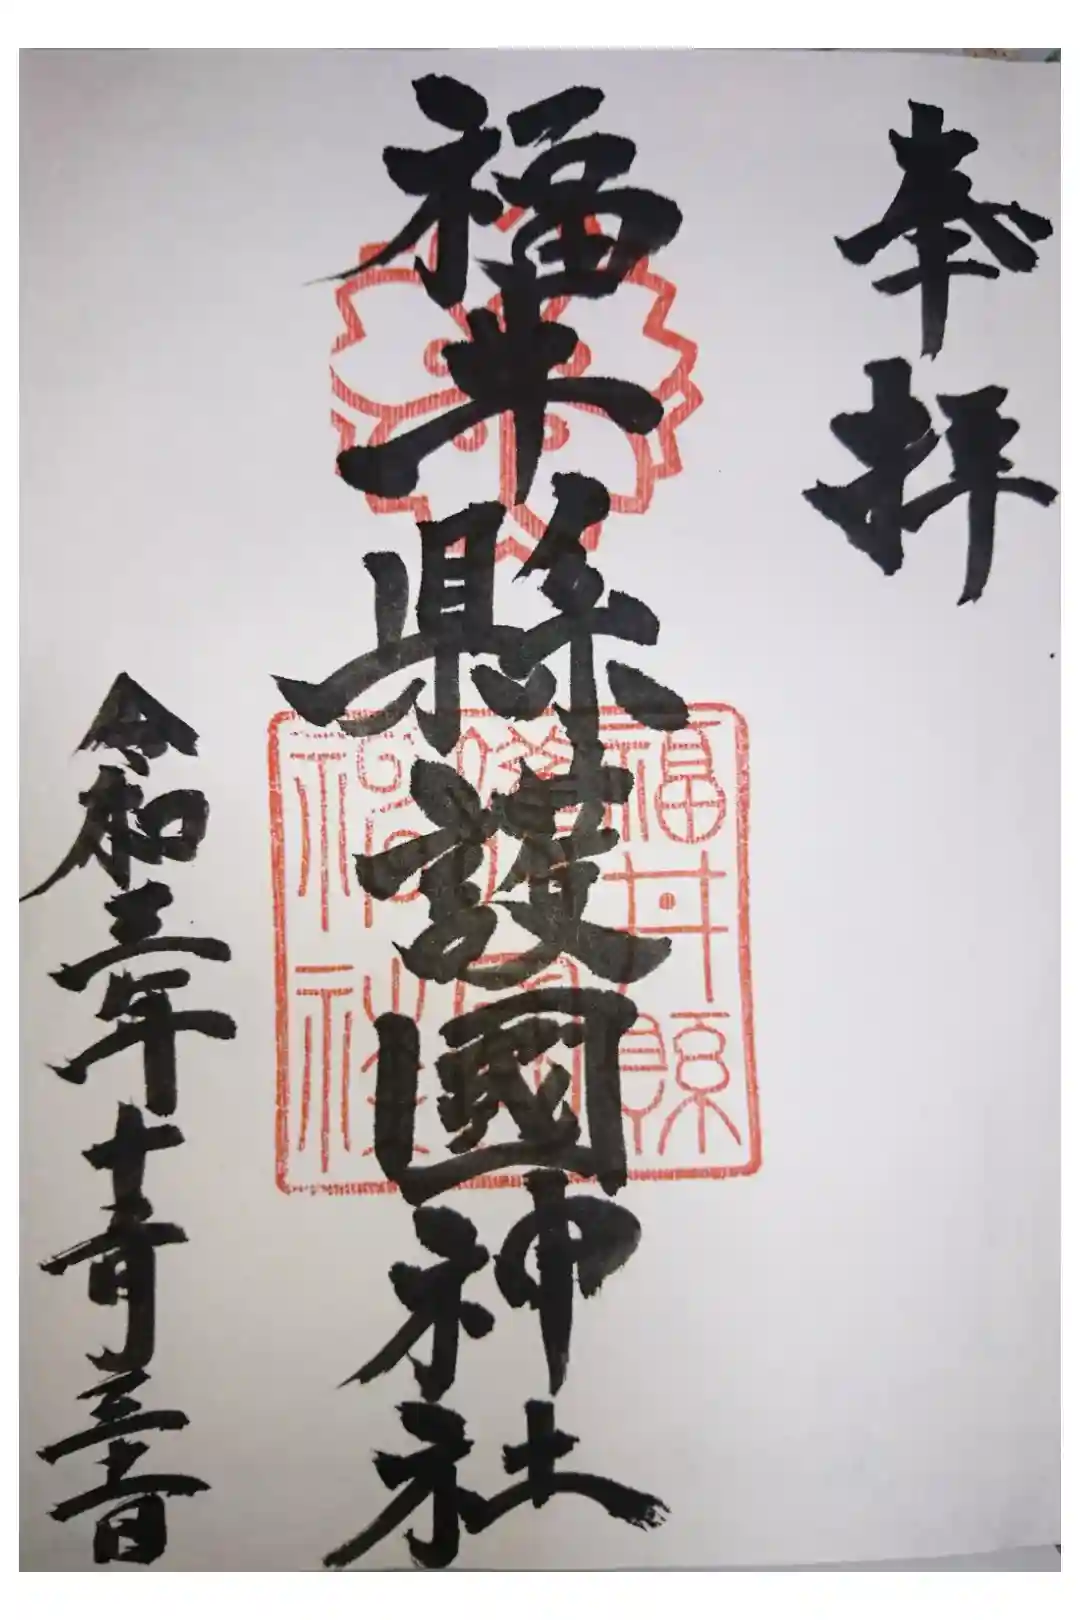 奉拝
福井縣護國神社
令和三年十一月三十日
福井縣
護國
神社